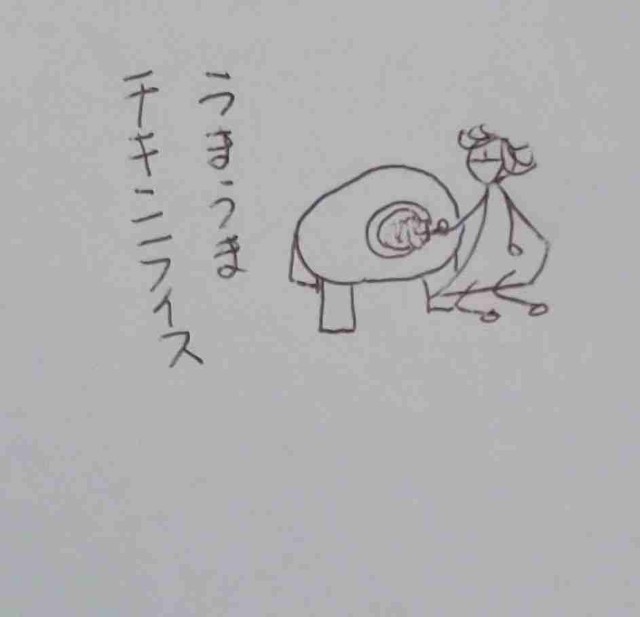 うまうま
チキンライス